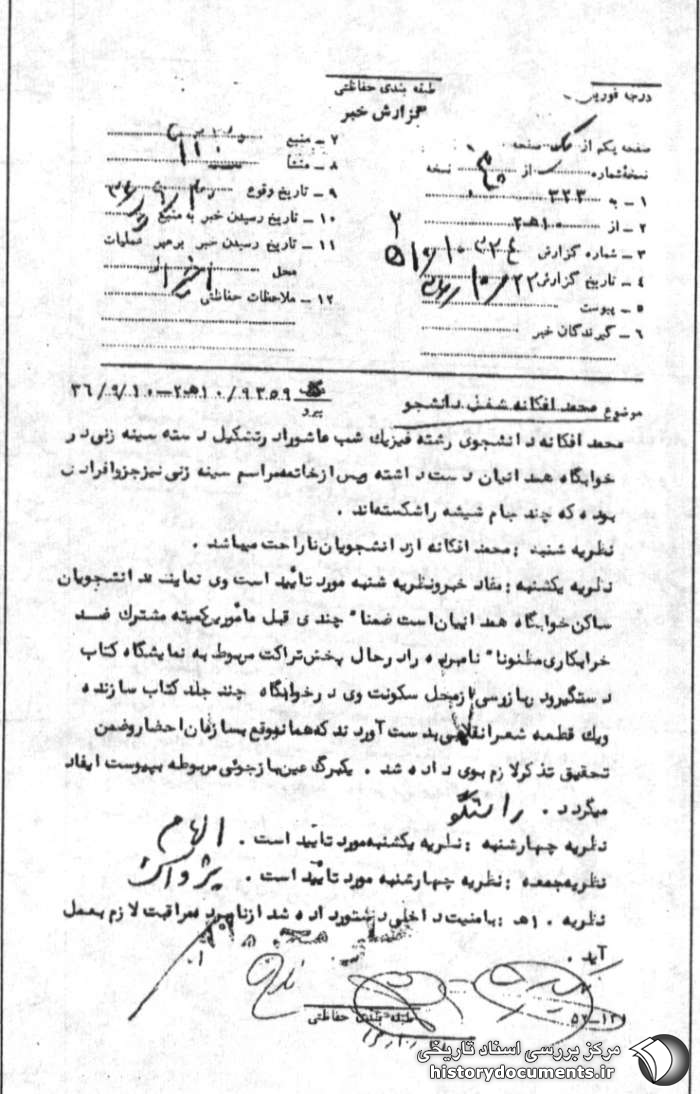 طبقه بندی حفاظتی
گزارش خبر
درجه فوریت
صفحه یکم از یک صفحه
نسخه شماره از نسخه
۱ - به ۳۲۳
۲ - از ۱۰هـ۲
۳ - شماره گزارش
۴ - تاریخ گزارش ۲۲
۵ - پیوست
۶ - گیرندگان خبر
۷ - منبع
۸ - منشأ
۹ - تاریخ وقوع
۱۰ - تاریخ رسیدن خبر به منبع
۱۱ - تاریخ رسیدن خبر برهبر عملیات
محل
۱۲ - ملاحظات حفاظتی
موضوع محمد افکانه شغل دانشجو
پیرو ۱۰/۹۳۵۹هـ۲-۳۶/۹/۱۰
محمد افکانه دانشجوی رشته فیزیک شب عاشورا در تشکیل دسته سینه زنی در
خوابگاه همدانیان دست داشته و پس از خاتمه مراسم سینه زنی نیز جزو افرادی
بوده که چند جام شیشه را شکسته‌اند .
نظریه شنبه : محمد افکانه از دانشجویان ناراحت میباشد .
نظریه یکشنبه : مفاد خبر و نظریه شنبه مورد تأیید است وی نماینده دانشجویان
ساکن خوابگاه همدانیان است ضمنا" چندی قبل مأمورین کمیته مشترک ضد
خرابکاری مظنونا" نامبرده را در حال پخش تراکت مربوط به نمایشگاه کتاب
دستگیر و در بازرسی از محل سکونت وی در خوابگاه چند جلد کتاب سازنده
و یک قطعه شعر انقلابی بدست آوردند که همانموقع بسازمان احضار و ضمن
تحقیق تذکر لازم بوی داده شد . یکبرگ عین بازجوئی مربوطه بپیوست ایفاد
میگردد . راستگو
نظریه چهارشنبه : نظریه یکشنبه مورد تأیید است . الهام
نظریه جمعه : نظریه چهارشنبه مورد تأیید است . پژواک
نظریه ۱۰هـ : بامنیت داخلی دستور داده شد از نامبرده مراقبت لازم بعمل
آید .
طبقه بندی حفاظتی
مرکز بررسی اسناد تاریخی
historydocuments.ir